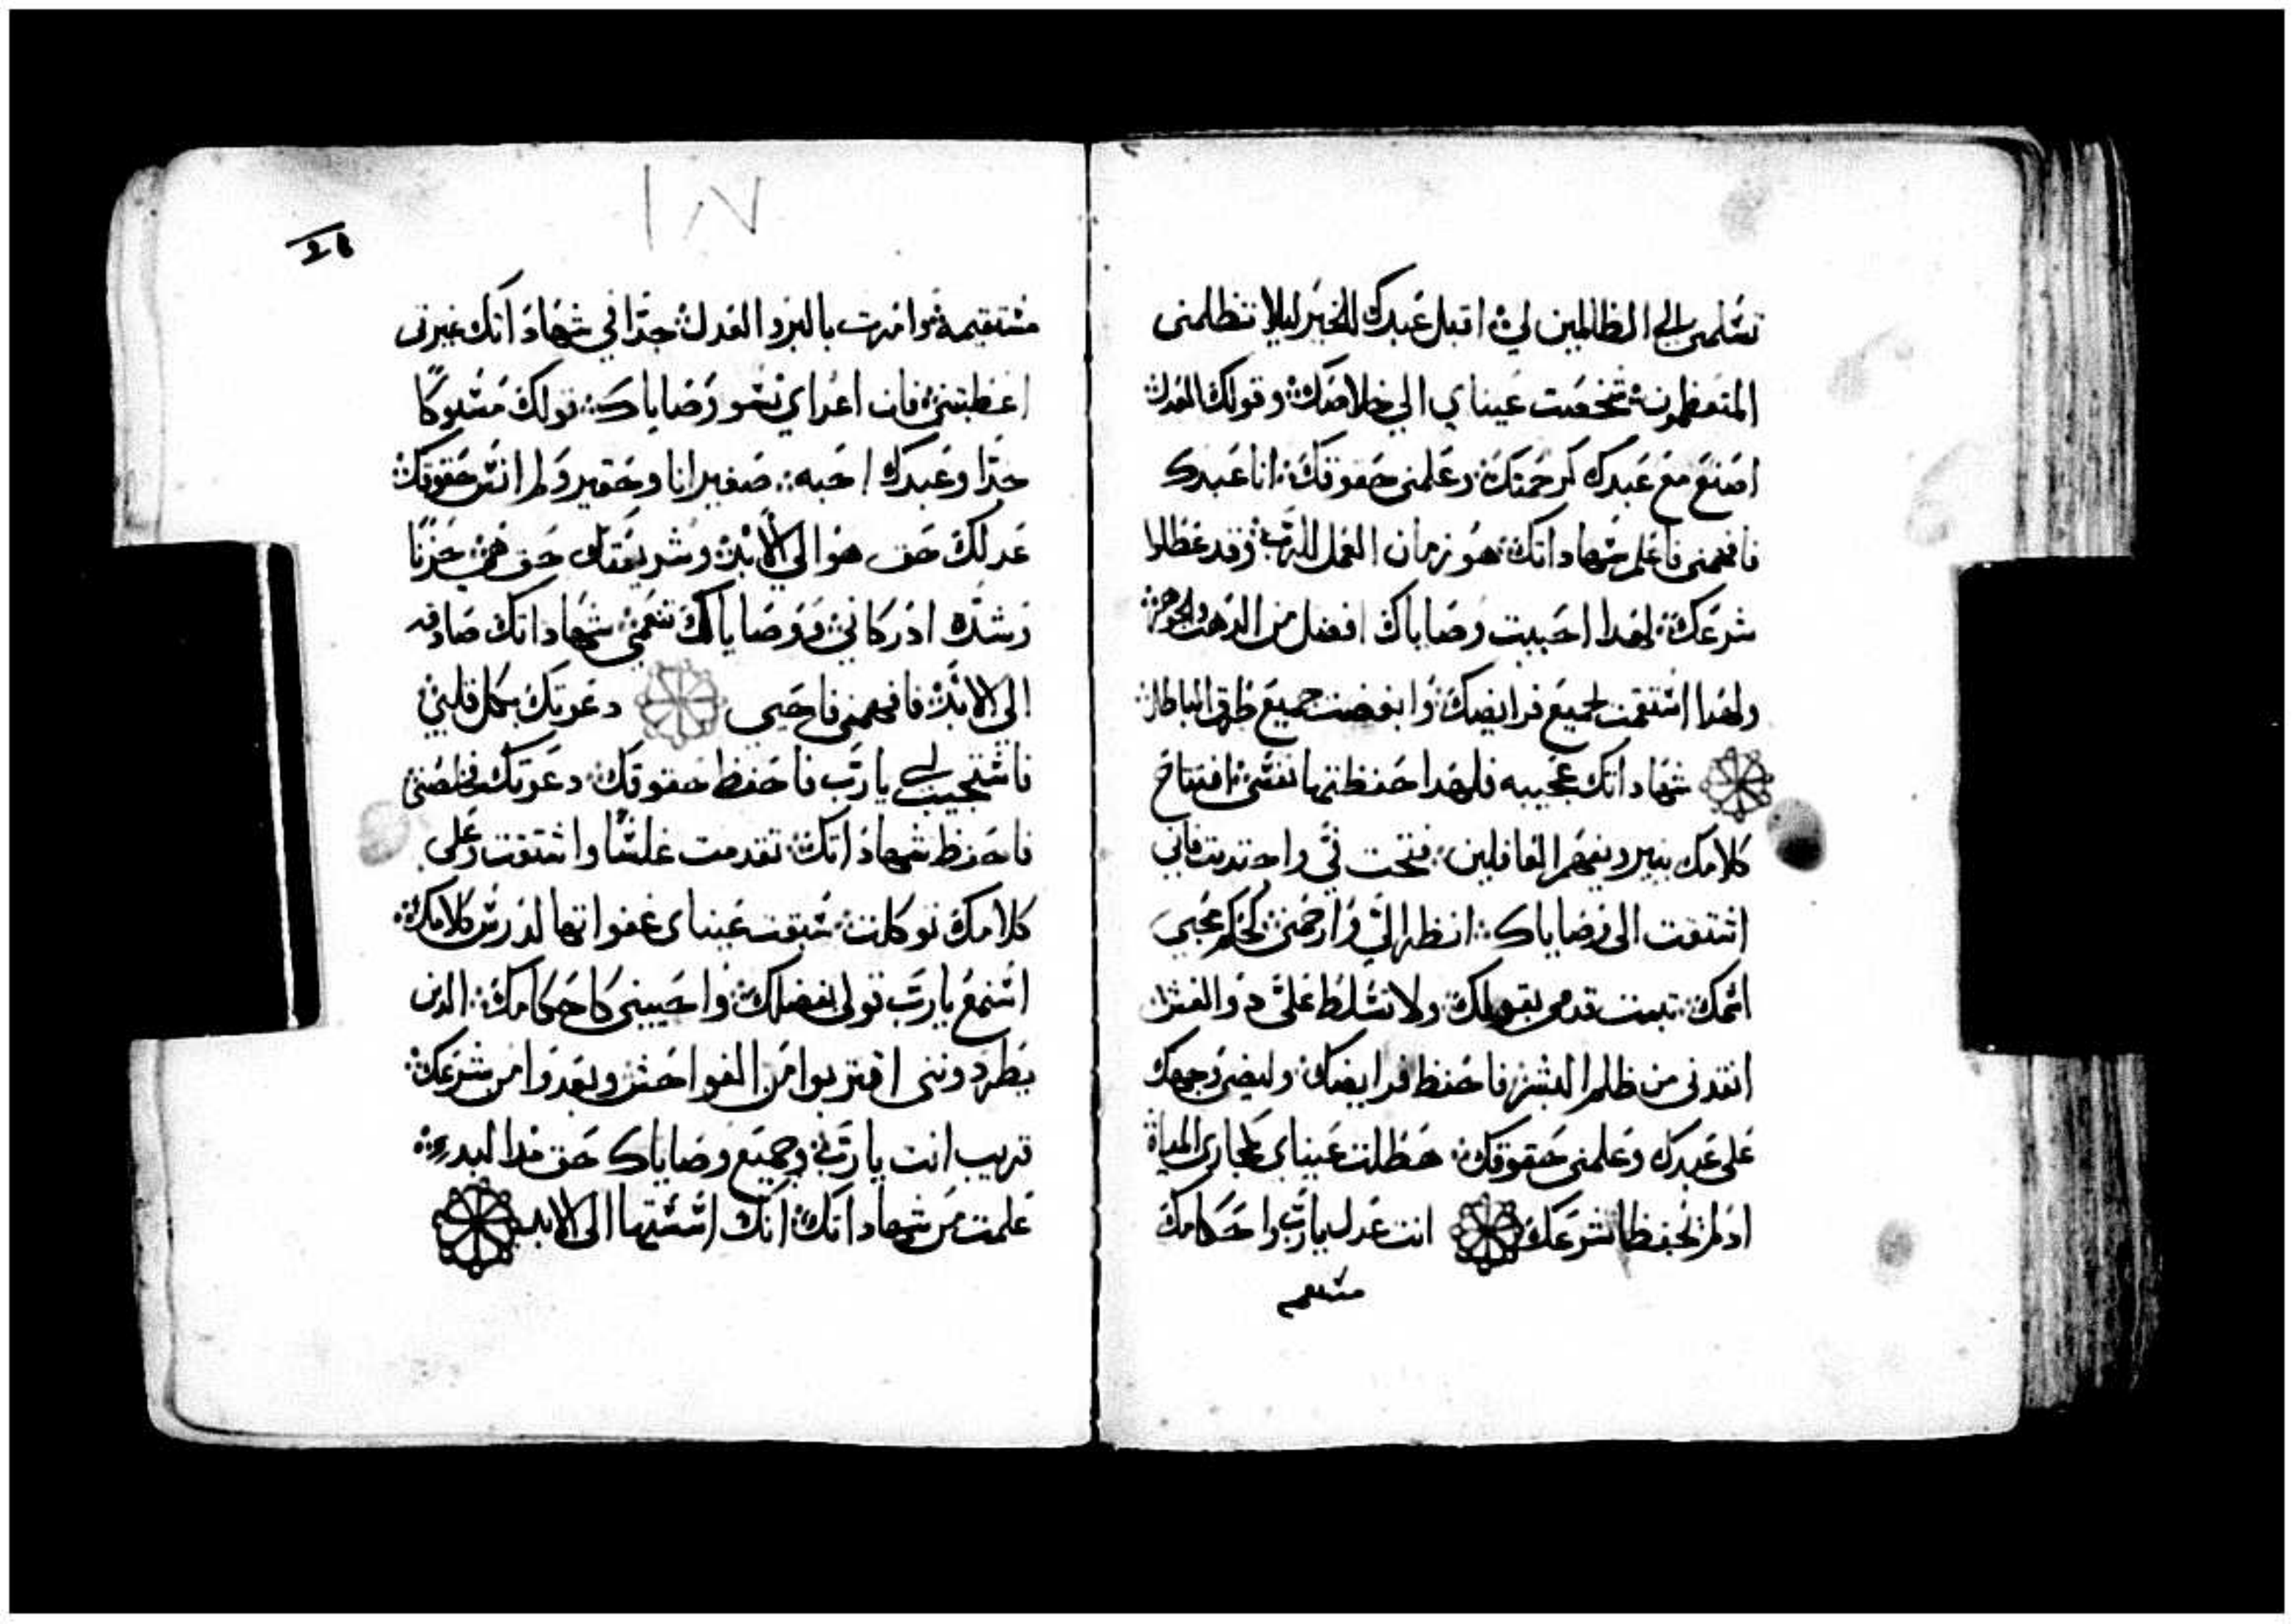 تسلمني الي الظالمين لي اقبل عبدك للخير ليلا تظلمني
المتعظمون شخصت عيناي الي خلاصك وقولك العدل
اصنع مع عبدك كرحمتك وعلمني حقوقك انا عبدك
فافهمني فاعلم شهاداتك هو زمان العمل للرب وقد عطلوا
شرعك لهدا احببت وصاياك افضل من الدهب والجوهر
ولهدا استقمت لجميع فرايضك وابغضت جميع طرق الباطل
شهاداتك عجيبه فلهدا حفظتها نفسي افتتاح
كلامك ينير ويفهم الغافلين فتحت في واجتدبت فاني
اشتقت الي وصاياك انظر الي وارحمني كحكم محبي
اسمك تبت قدمي بقولك ولا تسلط علي دو الغش
انقدني من ظلم البشر فاحفظ فرايضك وليضي وجهك
علي عبدك وعلمني حقوقك هطلت عيناي مجاري المياة
اد لم تحفظا شرعك انت عدل يارب واحكامك
مستقيمه
26
١٨٧
مستقيمة وامرت بالبر والعدل جدا في شهاداتك غيرتي
اعطبتني فان اعداي نسو وصاياك قولك مسبوكا
جدا وعبدك احبه صغير انا وحقير ولم انس حقوقك
عدلك حق هو الي الابد وشريعتك حق هي حزنا
وشده ادركاني ووصاياك تنعمي شهاداتك صادقه
الي الابد فافهمني فاحيى دعوتك بكل قلبي
فاستجيب لي يارب فاحفظ حقوقك دعوتك فخلصني
فاحفظ شهاداتك تقدمت غلسا واستقت وعلي
كلامك توكلت سبقت عيناي غفواتها لدرس كلامك
اسمع يارب قولي بفضلك واحييني كاحكامك الدين
يطردونني اقتربوا من الفواحش وبعدوا من شرعك
قريب انت يا رب وجميع وصاياك حق مدا البدي
علمت من شهاداتك انك اسستها الي الابد